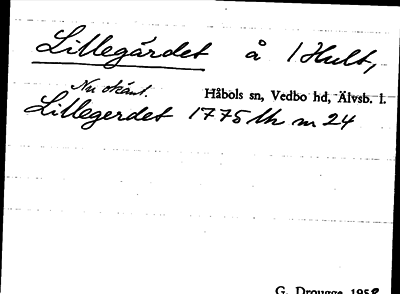 Lillegärdet å 1 Hult,
Nu okänt.
Håbols sn, Vedbo hd, Älvsb. l.
Lillegerdet 1775 lh nr 24
G. Drougge 1958